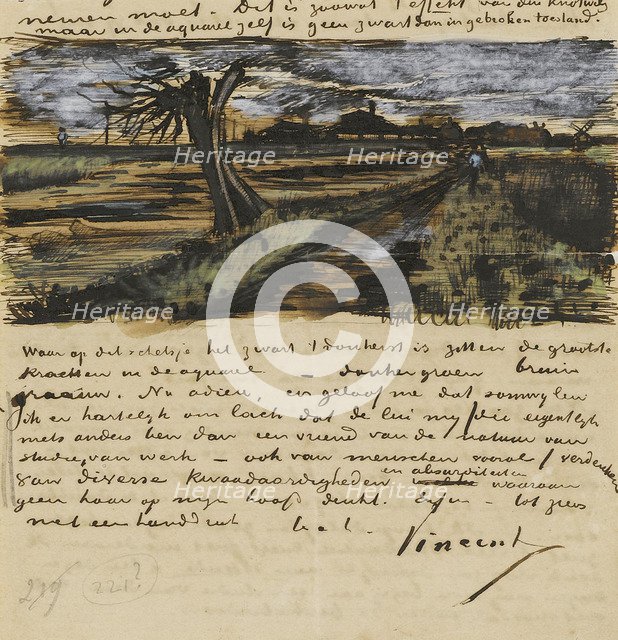 nemen moet. Dit is zoowat 't effekt van den knotwilg
maar in de aquarel zelf is geen zwart dan in gebroken toestand.
Heritage Heritage
Heritage Heritage
Waar op dit schetsje het zwart 't donkerst is zitten de grootste
krachten in de aquarel – donkergroen bruin
graauw. Nu adieu, en geloof me dat somwylen
ik er hartelyk om lach dat de lui my/die eigentlyk
niets anders ben dan een vriend van de natuur van
studie, van werk – ook van menschen vooral/verdenken
van diverse kwaadaardigheden en absurditeiten waaraan
geen haar op myn hoofd denkt. Enfin – tot ziens
met een handdruk t. à t.
Vincent
Heritage Heritage
Heritage Heritage
219 221?